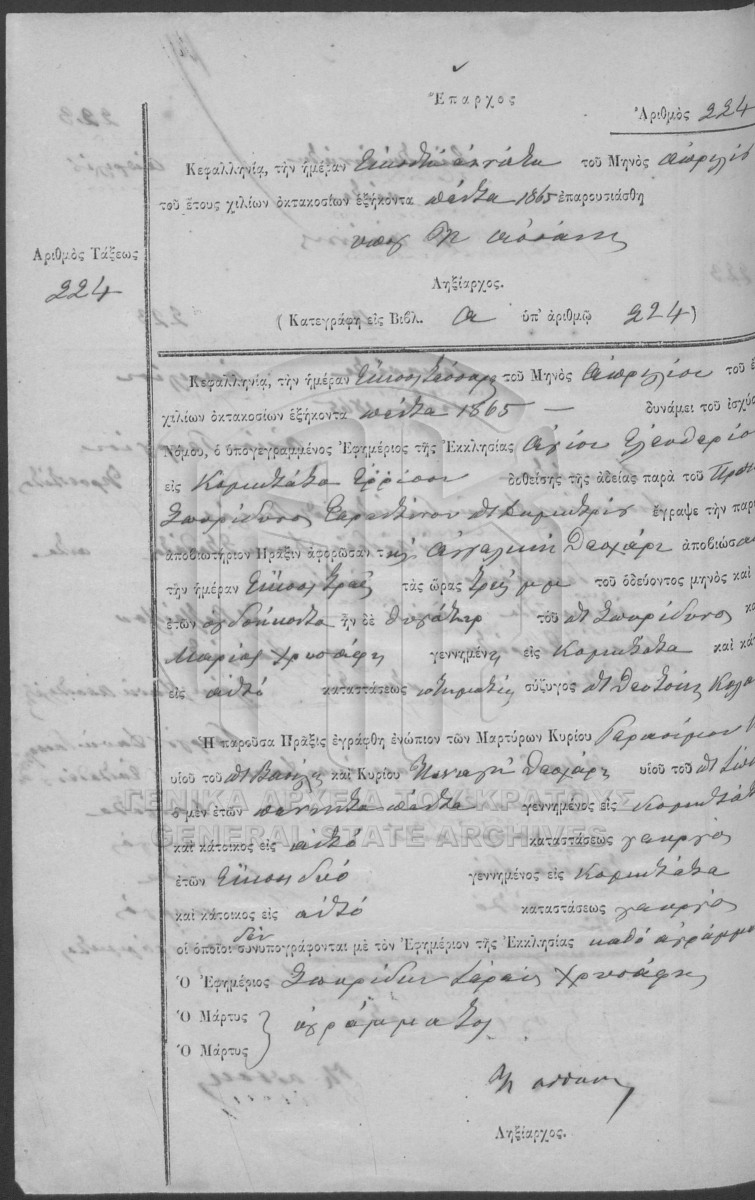 Ἔπαρχος
Ἀριθμὸς 224
Κεφαλληνίᾳ, τὴν ἡμέραν Εἰκοστὴ ἐννάτη τοῦ Μηνὸς Ἀπριλίου
τοῦ ἔτους χιλίων ὀκτακοσίων ἑξήκοντα πέντε 1865 ἐπαρουσιάσθη
Ἀριθμὸς Τάξεως
224
Ληξίαρχος.
(Κατεγράφη εἰς Βιβλ. α ὑπ' ἀριθμῷ 224)
Κεφαλληνίᾳ, τὴν ἡμέραν Εἴκοσι τέσσαρες τοῦ Μηνὸς Ἀπριλίου τοῦ ἔ
χιλίων ὀκτακοσίων ἑξήκοντα πέντε 1865 — δυνάμει τοῦ ἰσχύο
Νόμου, ὁ ὑπογεγραμμένος Ἐφημέριος τῆς Ἐκκλησίας Ἁγίου Ἐλευθερίου
εἰς Κομιτάτα Ἐρρίσου δοθείσης τῆς ἀδείας παρὰ τοῦ
Σπυρίδωνος ἔγραψε τὴν παρ
ἀποβιωτήριον Πρᾶξιν ἀφορῶσαν τῆς Ἀγγελικὴ ἀποβιώσα
τὴν ἡμέραν Εἴκοσι τρεῖς τὰς ὥρας τρεῖς μμ τοῦ ὁδεύοντος μηνὸς καὶ
ἐτῶν ὀγδοήκοντα ἦν δὲ θυγάτηρ τοῦ ποτ Σπυρίδωνος κα
Μαρίας Χρυσάφη γεννημένη εἰς Κομιτάτα καὶ κάτ
εἰς αὐτό καταστάσεως κτηματίας σύζυγος ποτ
Ἡ παροῦσα Πρᾶξις ἐγράφθη ἐνώπιον τῶν Μαρτύρων Κυρίου Γερασίμου
υἱοῦ τοῦ ποτ Βασίλη καὶ Κυρίου Παναγῆ υἱοῦ τοῦ ποτ
ὁ μὲν ἐτῶν πενῆντα πέντε γεννημένος εἰς Κομιτάτ
καὶ κάτοικος εἰς αὐτό καταστάσεως γεωργός
ἐτῶν Εἴκοσι δυό γεννημένος εἰς Κομιτάτα
καὶ κάτοικος εἰς αὐτό καταστάσεως γεωργός
οἱ ὁποῖοι δὲν συνυπογράφονται μὲ τὸν Ἐφημέριον τῆς Ἐκκλησίας καθὸ ἀγράμμα
Ὁ Ἐφημέριος Σπυρίδων ἱερεὺς Χρυσάφης
Ὁ Μάρτυς
Ὁ Μάρτυς } ἀγράμματοι
Ληξίαρχος.
ΓΕΝΙΚΑ ΑΡΧΕΙΑ ΤΟΥ ΚΡΑΤΟΥΣ
GENERAL STATE ARCHIVES